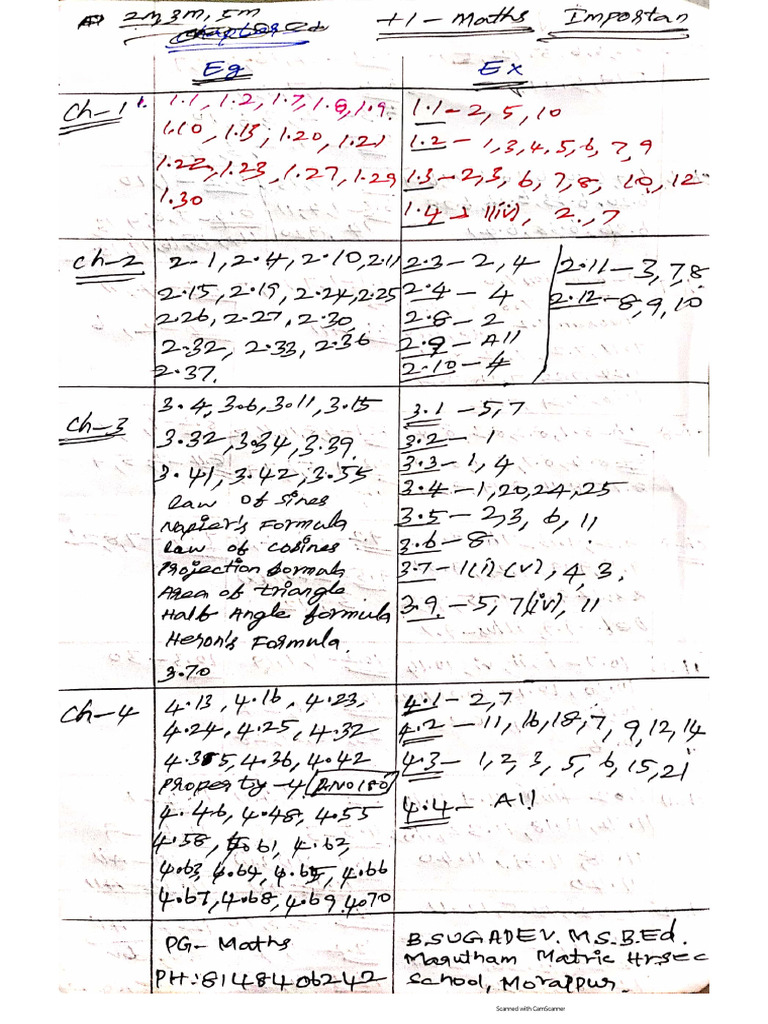 2M, 3M, 5M +1 - Maths Importan
Eg Ex
Ch-1 1.1, 1.2, 1.7, 1.8, 1.9. 1.1 - 2, 5, 10
1.10, 1.13, 1.20, 1.21 1.2 - 1, 3, 4, 5, 6, 7, 9
1.22, 1.23, 1.27, 1.29 1.3 - 2, 3, 6, 7, 8, 10, 12
1.30 1.4 - 1(iv), 2, 7
Ch-2 2.1, 2.4, 2.10, 2.11 2.3 - 2, 4 2.11 - 3, 7, 8
2.15, 2.19, 2.24, 2.25 2.4 - 4 2.12 - 8, 9, 10
2.26, 2.27, 2.30, 2.8 - 2
2.32, 2.33, 2.36 2.9 - All
2.37. 2.10 - 4
Ch-3 3.4, 3.6, 3.11, 3.15 3.1 - 5, 7
3.32, 3.34, 3.39. 3.2 - 1
3.41, 3.42, 3.55 3.3 - 1, 4
Law of sines 3.4 - 1, 20, 24, 25
Napier's Formula 3.5 - 2, 3, 6, 11
Law of cosines 3.6 - 8
Projection formula 3.7 - 1(i) (v), 4, 3.
Area of triangle 3.9 - 5, 7(iv), 11
Half Angle formula
Heron's Formula.
3.70
Ch-4 4.13, 4.16, 4.23, 4.1 - 2, 7
4.24, 4.25, 4.32 4.2 - 11, 16, 18, 7, 9, 12, 14
4.35, 4.36, 4.42 4.3 - 1, 2, 3, 5, 6, 15, 21
Property - 4 P.NO 180 4.4 - All
4.46, 4.48, 4.55
4.58, 4.61, 4.62,
4.63, 4.64, 4.65, 4.66
4.67, 4.68, 4.69, 4.70
PG - Maths B.SUGADEV. M.S.B.Ed.
PH: 8148406242 Marutham Matric Hr sec
School, Morappur.
Scanned with CamScanner